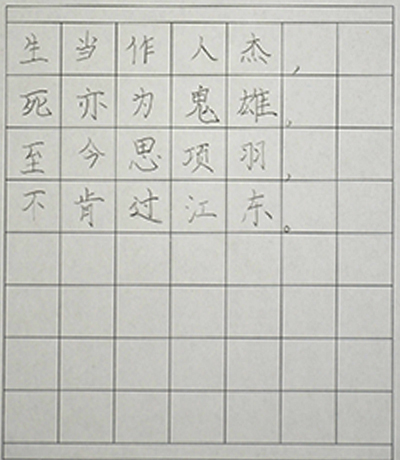 生当作人杰,
死亦为鬼雄,
至今思项羽,
不肯过江东。